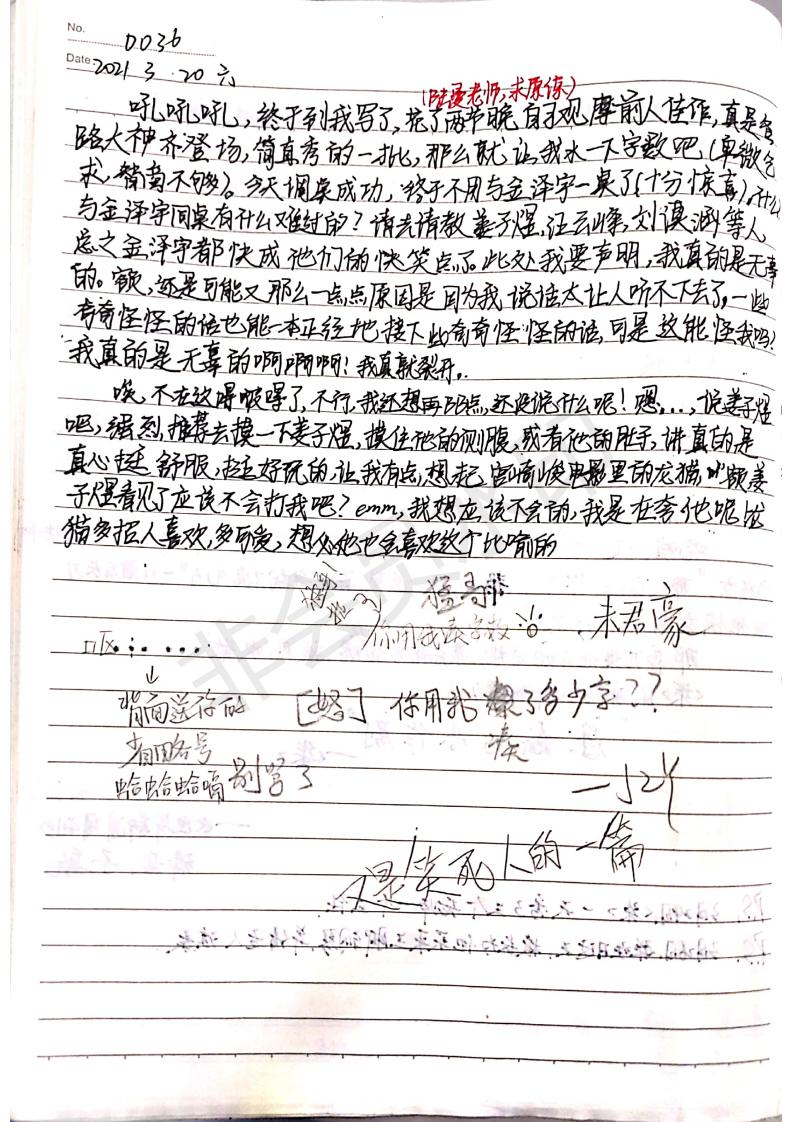 No. 0036
Date. 2021 3. 20 六
(陆漫老师,求原谅)
吼吼吼吼,终于到我写了,花了两节晚自习观摩前人佳作,真是各
路大神齐登场,简直秀的一批,那么就让我水一下字数吧(卑微乞
求,葡萄不够)。今天调桌成功,终于不用与金泽宇一桌了(十分惊喜),什么
与金泽宇同桌有什么难过的?请去请教姜子煜,汪云峰,刘谟涵等人
总之金泽宇都快成他们的快笑点了。此处我要声明,我真的是无辜
的。额,还是可能又那么一点点原因是因为我说话太让人听不下去了,一些
奇奇怪怪的话也能一本正经地接下此奇奇怪怪的话,可是这能怪我吗?
我真的是无辜的啊啊啊啊!我真就裂开。
唉,不在这嘚啵嘚了,不行,我还想再BB点,还没说什么呢!嗯...,说姜子煜
吧,强烈推荐去摸一下姜子煜,摸住他的侧腹,或者他的肚子,讲真的是
真心挺舒服,挺好玩的,让我有点想起宫崎峻电影里的龙猫,额姜
子煜看见了应该不会打我吧?emm,我想应该不会的,我是在夸他呢,龙
猫多招人喜欢,多可爱,想必他也会喜欢这个比喻的
猛哥
你用我凑字数
朱君豪
......
↓
背面送你的
省略号
蛤蛤蛤蛤嗝
别学了
[怒] 你用我凑了多少字??
凑
又是笑死人的一篇